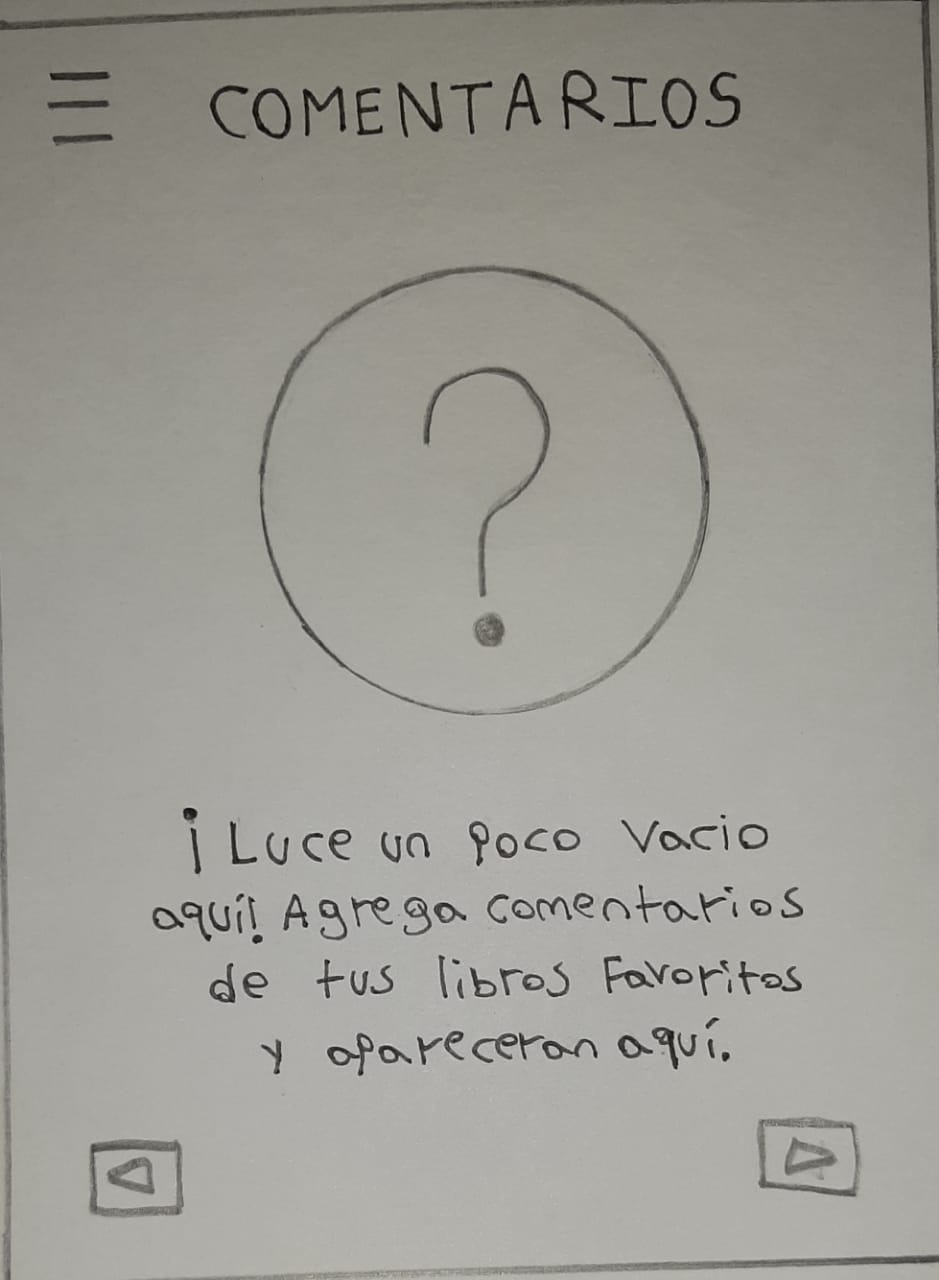 COMENTARIOS
¡Luce un poco vacio
aquí! Agrega comentarios
de tus libros Favoritos
y apareceran aquí.